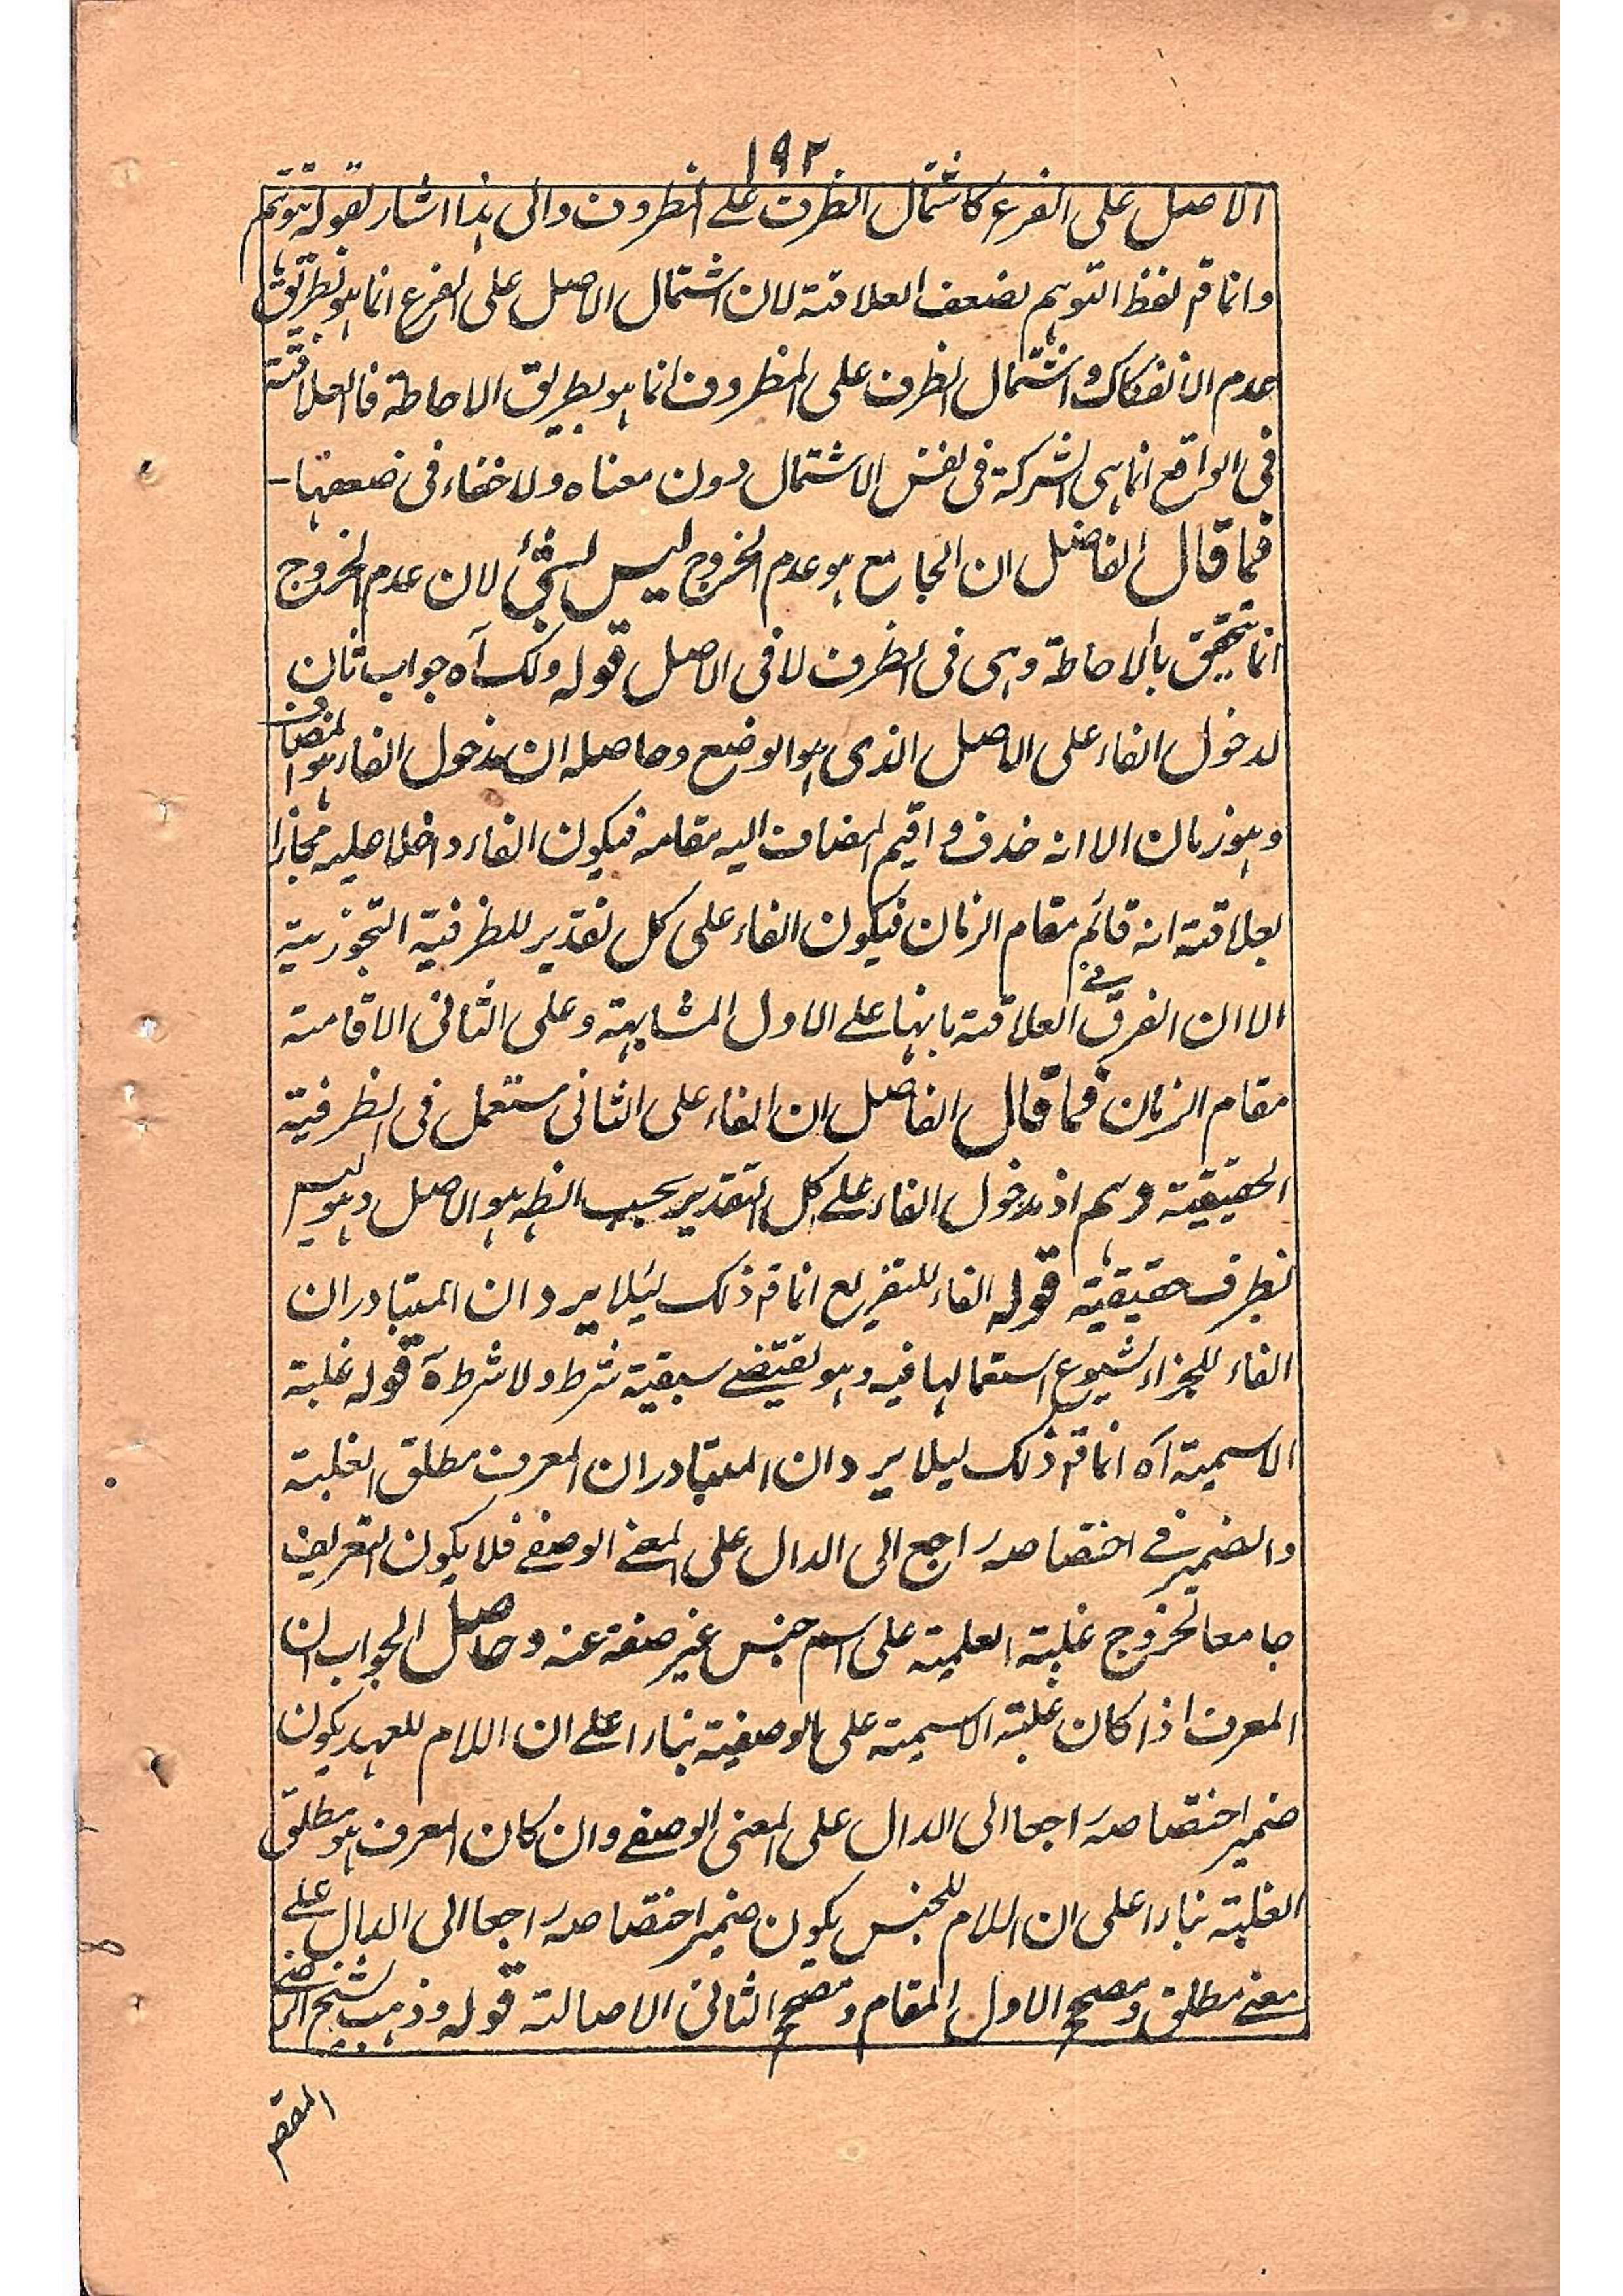 ١٩٢
الاصل على الفرع كاشتمال الظرف على المظروف والى هذا اشار بقوله توهم
وانما قم لفظ التوهم لضعف العلاقة لان اشتمال الاصل على الفرع انما هو بطريق
عدم الانفكاك واشتمال الظرف على المظروف انما هو بطريق الاحاطة فالعلاقة
فى الواقع انما هى الشركة فى نفس الاشتمال دون معناه ولا خفاء فى ضعفها -
فما قال الفاضل ان الجامع هو عدم الخروج ليس بشئ لان عدم الخروج
انما يتحقق بالاحاطة وهى فى الظرف لا فى الاصل قوله ولك آه جواب ثان
لدخول الفاء على الاصل الذى هو الوضع وحاصله ان مدخول الفاء هو المضاف
وهو زمان الا انه حذف واقيم المضاف اليه مقامه فيكون الفاء داخلا عليه مجازا
بعلاقة انه قائم مقام الزمان فيكون الفاء على كل تقدير للظرفية التجوزية
الا ان الفرق فى العلاقة بانها على الاول المشابهة وعلى الثانى الاقامة
مقام الزمان فما قال الفاضل ان الفاء على الثانى مستعمل فى الظرفية
الحقيقية وهم اذ مدخول الفاء على كل التقدير بحسب الظه هو الاصل وهو ليس
بظرف حقيقية قوله الفاء للتفريع انما قم ذلك ليئلا يرد ان المتبادر ان
الفاء للجزاء لشيوع استعمالها فيه وهو يقتضے سبقية شرط ولا شرط ة قوله غلبة
الاسمية آه انما قم ذلك ليلا يرد ان المتبادر ان المعرف مطلق الغلبة
والضمير فے اختصاصه راجع الى الدال على المعنے الوصفے فلا يكون التعريف
جامعا لخروج غلبة العلمية على اسم جنس غير صفة عنه وحاصل الجواب ان
المعرف اذا كان غلبة الاسمية على الوصفية بناء على ان اللام للعهد يكون
ضمير اختصاصه راجعا الى الدال على المعنى الوصفے وان كان المعرف هو مطلق
الغلبة بناء على ان اللام للجنس يكون ضمير اختصاصه راجعا الى الدال علے
معنے مطلق ومصحح الاول المقام ومصحح الثانى الاصالة قوله وذهب الشيخ الرضے
المقصم